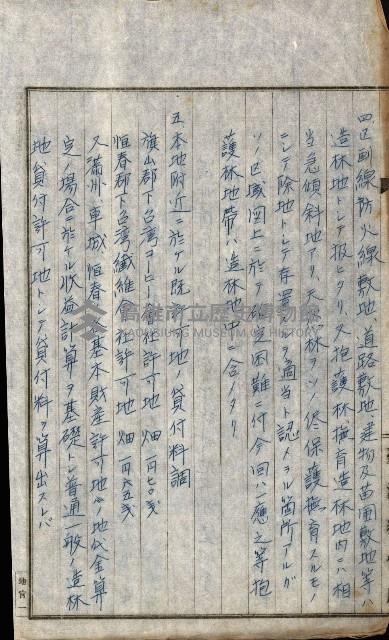 四区画線防火線敷地、道路敷地建物及苗圃敷地等ハ
造林地トシテ扱ヒタリ、又抱護林撫育造林地内ニハ相
当急傾斜地アリ、天然林ヲソノ儘保護撫育スルモノ
ニシテ除地トシテ存置スルヲ適当ト認メラル箇所アルガ
ソノ区域図上ニ於テ確定困難ニ付今回ハ一應之等抱
護林地帯ハ造林地中ニ含メタリ
五本地附近ニ於ケル既許可地ノ貸付料調
旗山郡下台湾コーヒー会社許可地 畑 一円七〇銭
恒春郡下台湾纖維会社許可地 畑 一円六五銭
又満州、車城、恒春庄基本財産許可地ノ地代金算
定ノ場合ニ於ケル収益計算ヲ基礎トシ普通一般ノ造林
地貸付許可地トシテ貸付料ヲ算出スレバ
高雄市立歷史博物館
KAOHSIUNG MUSEUM OF HISTORY